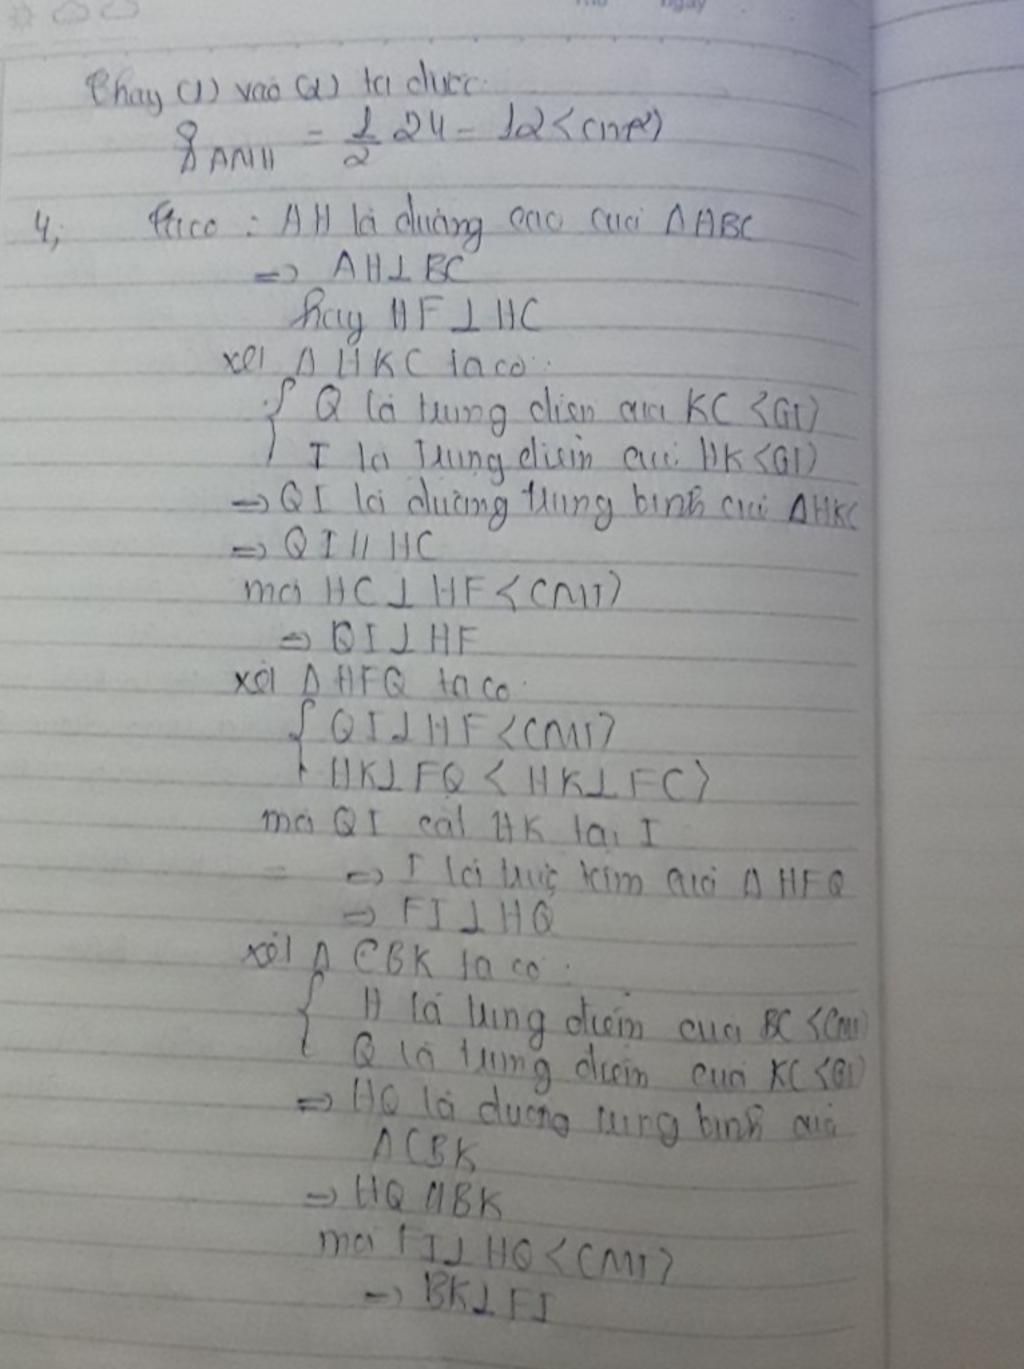 Thay (1) vào (2) ta được:
S AMH = 1/2 24 = 12 <cm²>
4, Ta có : AH là đường cao của Δ ABC
=> AH ⊥ BC
hay HF ⊥ HC
xét Δ HKC ta có:
{ Q là trung điểm của KC <GT>
I là trung điểm của HK <GT>
=> QI là đường trung bình của ΔHKC
=> QI // HC
mà HC ⊥ HF <CMT>
=> QI ⊥ HF
xét Δ HFQ ta có:
{ QI ⊥ HF <CMT>
HK ⊥ FQ < HK ⊥ FC >
mà QI cắt HK tại I
=> I là trực tâm của Δ HFQ
=> FI ⊥ HQ
xét Δ CBK ta có:
{ H là trung điểm của BC <CMT>
Q là trung điểm của KC <GT>
=> HQ là đường trung bình của
ΔCBK
=> HQ // BK
mà FI ⊥ HQ <CMT>
=> BK ⊥ FI